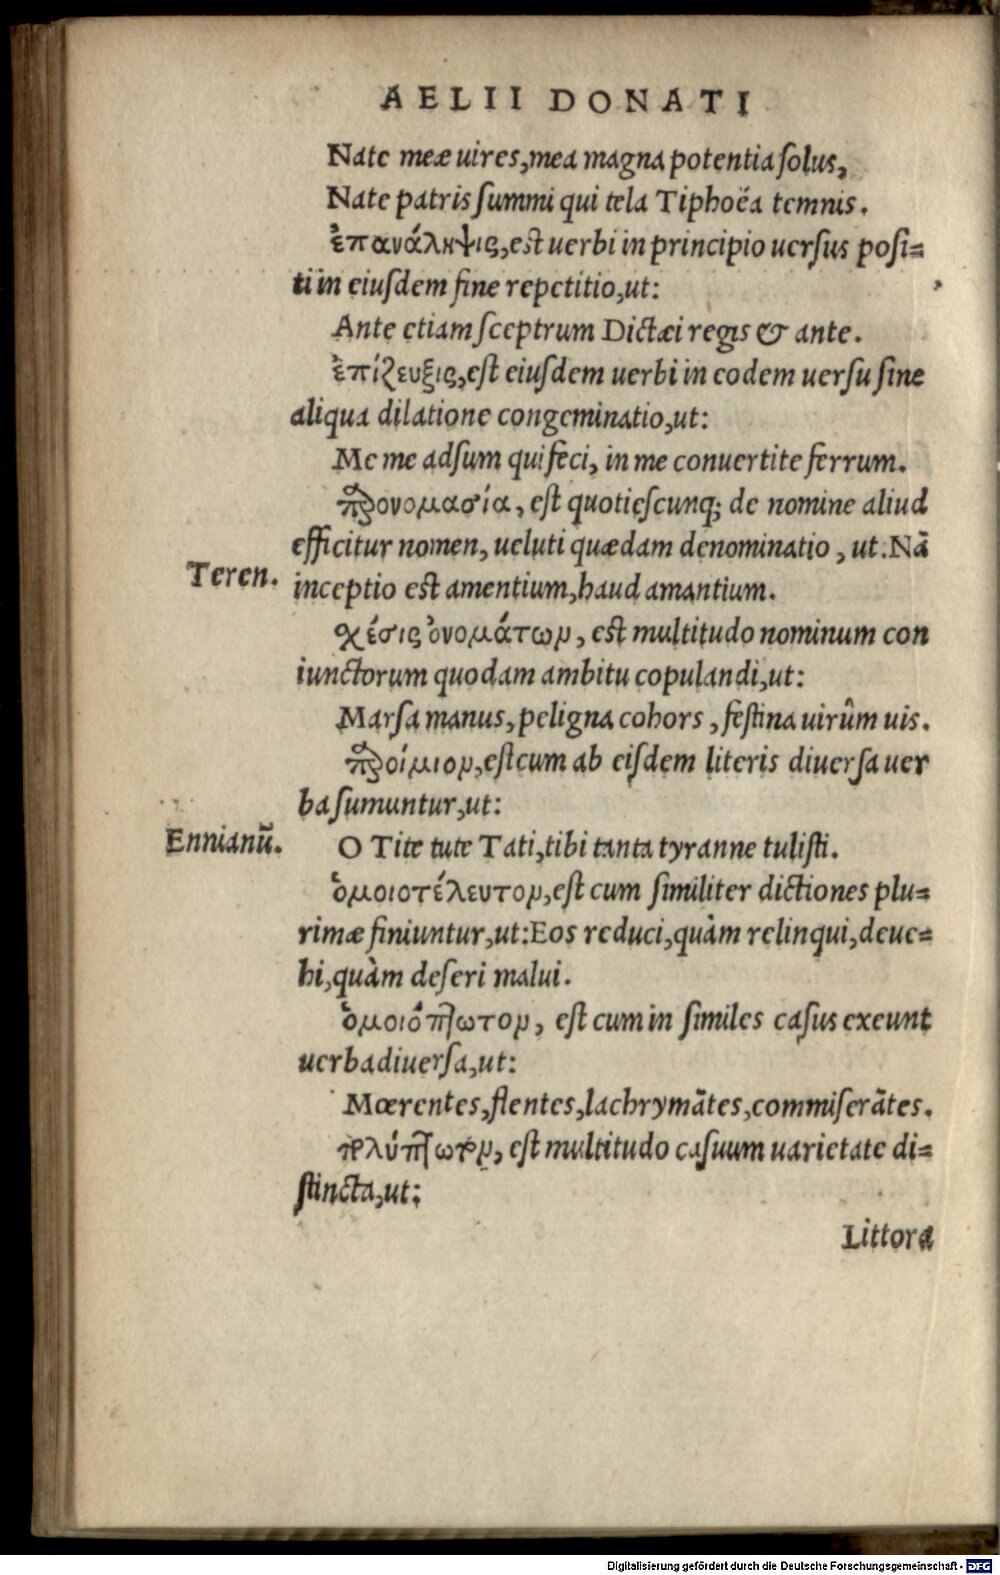 AELII DONATI
Nate meæ uires, mea magna potentia solus,
Nate patris summi qui tela Tiphoëa temnis.
ἐπανάληψις, est uerbi in principio uersus posi=
ti in eiusdem fine repetitio, ut:
Ante etiam sceptrum Dictæi regis & ante.
ἐπίζευξις, est eiusdem uerbi in eodem uersu sine
aliqua dilatione congeminatio, ut:
Me me adsum qui feci, in me conuertite ferrum.
προνομασία, est quotiescunq; de nomine aliud
efficitur nomen, ueluti quædam denominatio, ut. Nã
Teren. inceptio est amentium, haud amantium.
χέσις ὀνομάτων, est multitudo nominum con
iunctorum quodam ambitu copulandi, ut:
Marsa manus, peligna cohors, festina uirûm uis.
προίμιον, est cum ab eisdem literis diuersa uer
ba sumuntur, ut:
Ennianũ. O Tite tute Tati, tibi tanta tyranne tulisti.
ὁμοιοτέλευτον, est cum similiter dictiones plu=
rimæ finiuntur, ut: Eos reduci, quàm relinqui, deue=
hi, quàm deseri malui.
ὁμοιόπτωτον, est cum in similes casus exeunt
uerba diuersa, ut:
Mœrentes, flentes, lachrymãtes, commiserãtes.
πολύπτωτον, est multitudo casuum uarietate di=
stincta, ut:
Littora
Digitalisierung gefördert durch die Deutsche Forschungsgemeinschaft - DFG